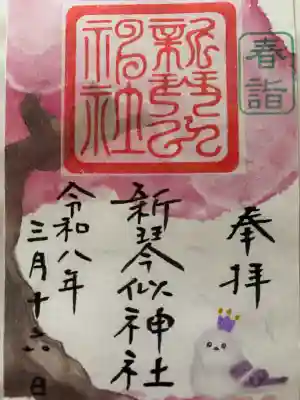 春詣
新琴似神社
奉拝
新琴似神社
令和八年
三月十六日